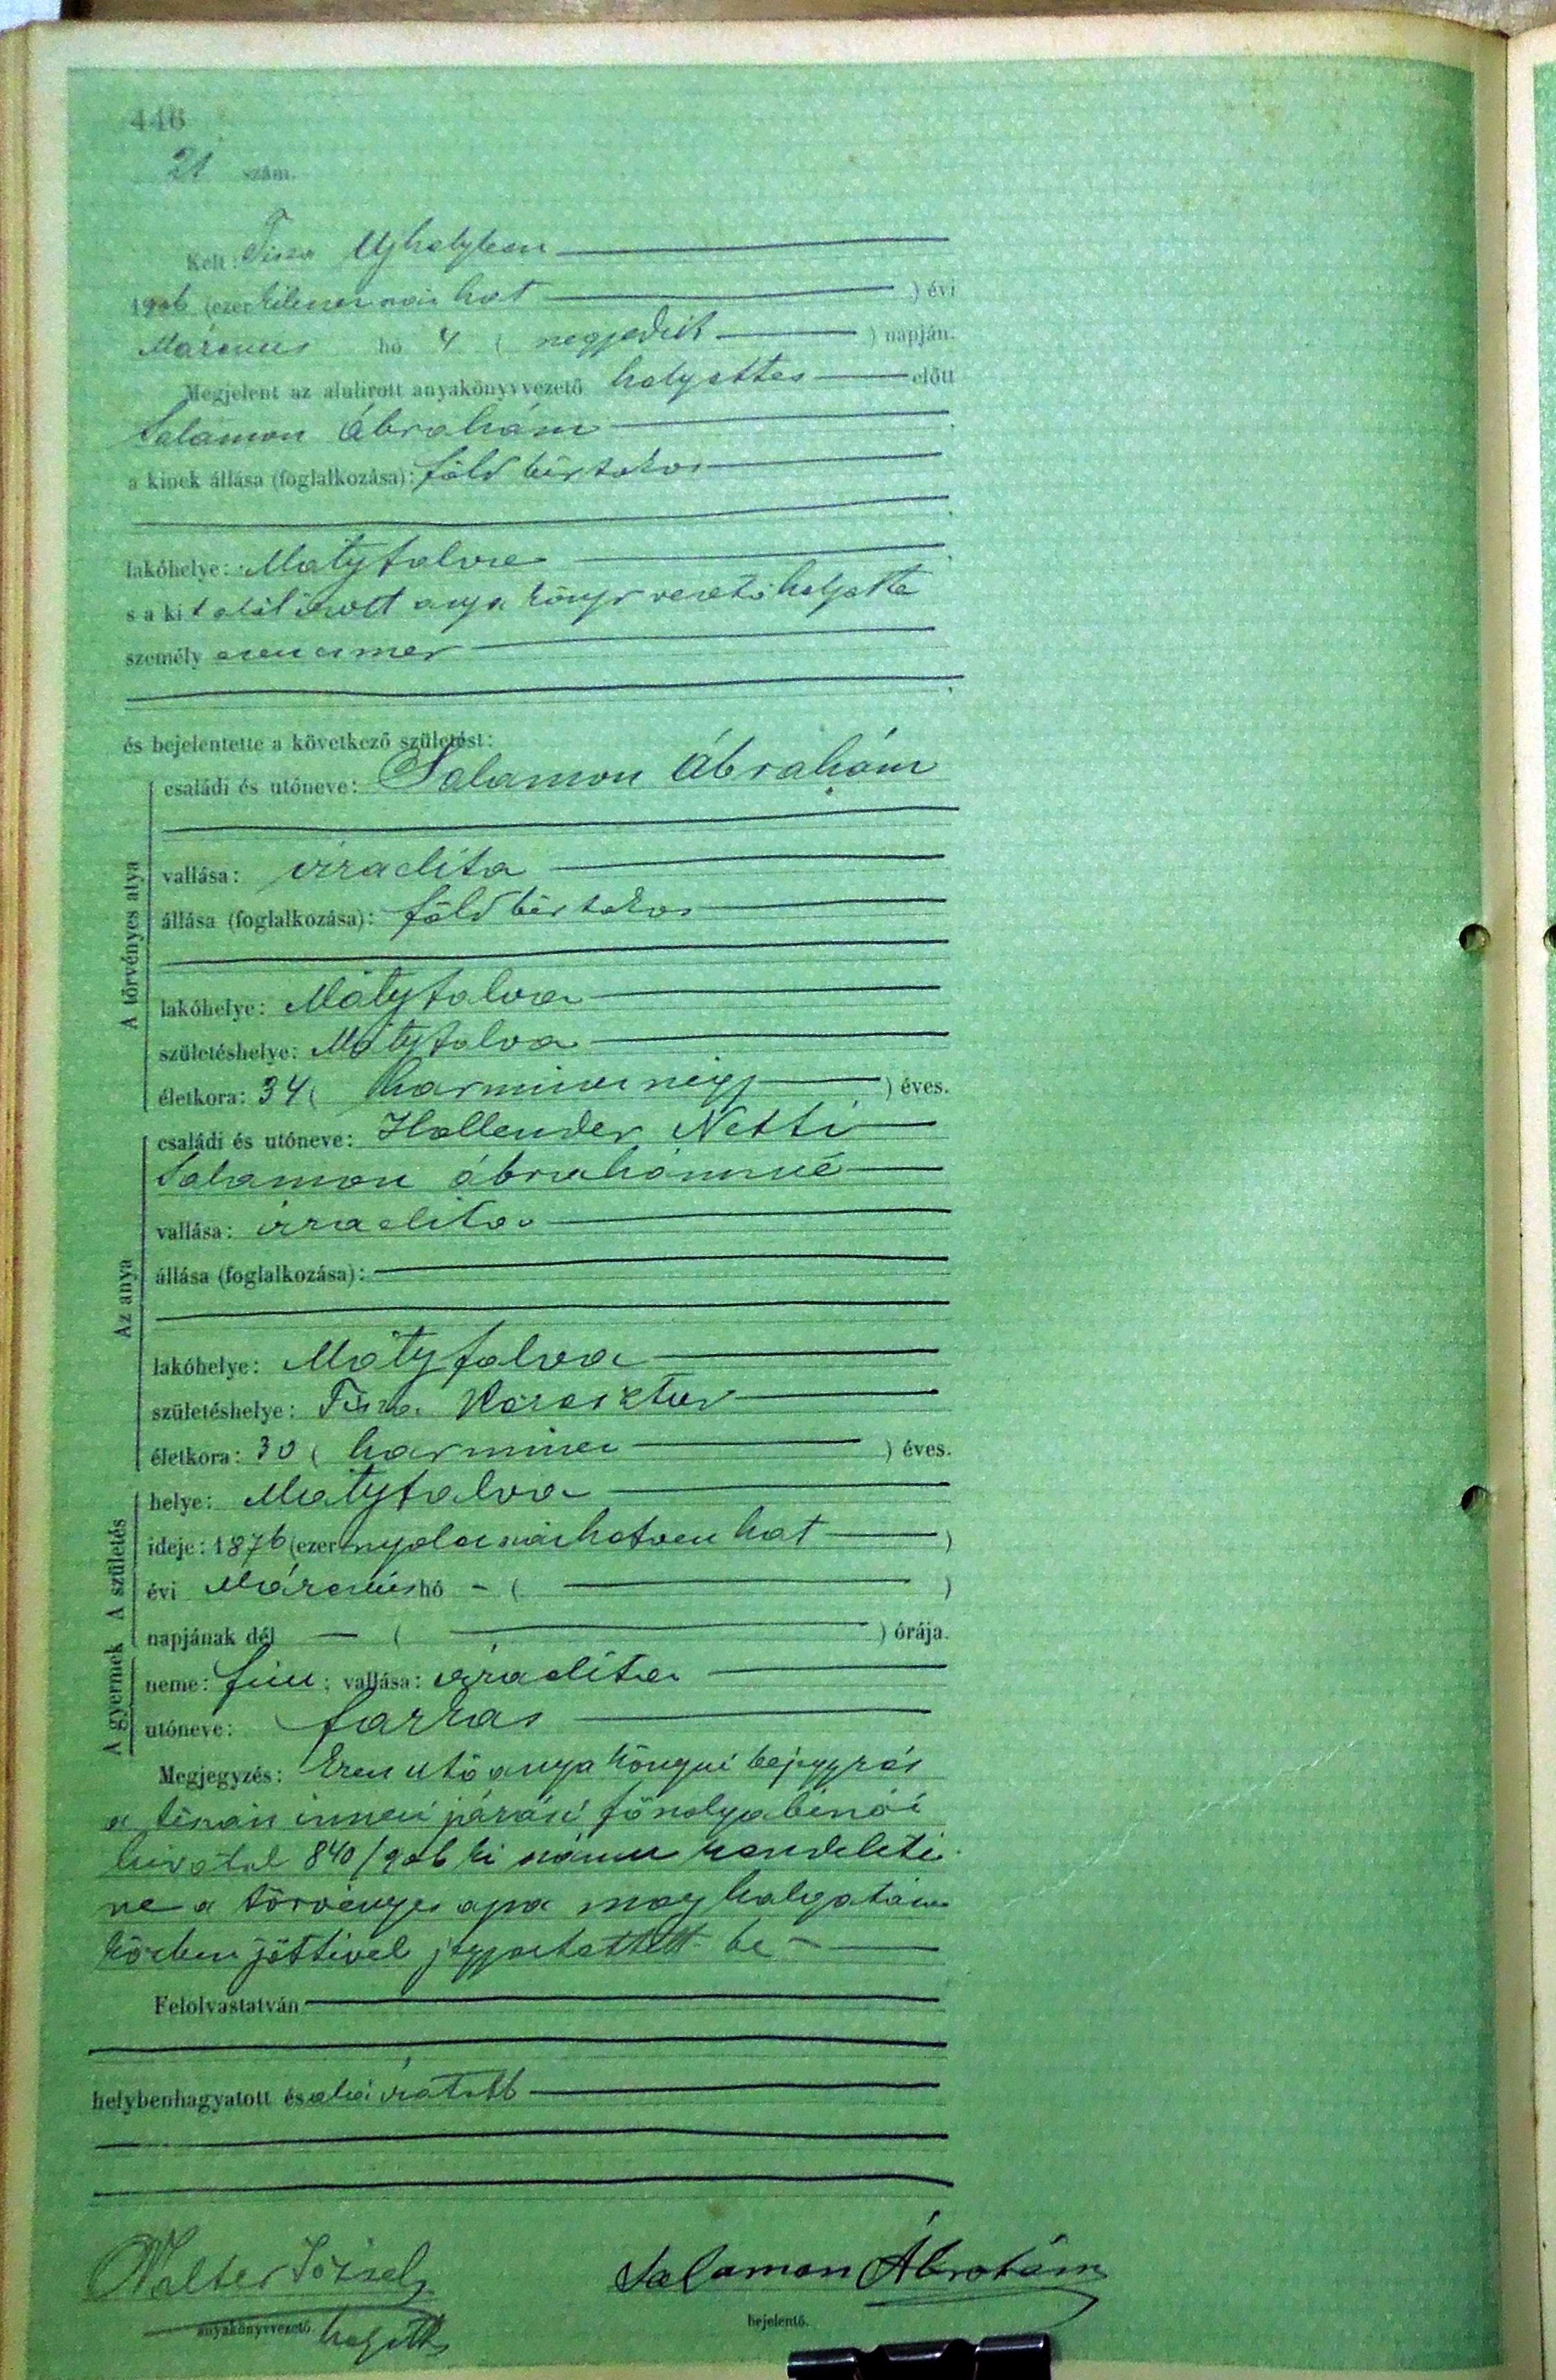 446
21 szám.
Kelt: Tisza Ujhelyben
1906 (ezerkilenczszáz hat ) évi
Márczius hó 4 ( negyedik ) napján.
Megjelent az alulirott anyakönyvvezető helyettes előtt
Salamon Ábrahám
a kinek állása (foglalkozása): földbirtokos
lakóhelye: Mátyfalva
s a kit alólirott anyakönyvvezető helyettes
személy esen ismer
és bejelentette a következő születést:
A törvényes atya
családi és utóneve: Salamon Ábrahám
vallása: izraelita
állása (foglalkozása): földbirtokos
lakóhelye: Mátyfalva
születéshelye: Mátyfalva
életkora: 34 ( harmincznégy ) éves.
Az anya
családi és utóneve: Hollender Netti
Salamon ábrahámné
vallása: izraelita
állása (foglalkozása):
lakóhelye: Mátyfalva
születéshelye: Tisza Keresztur
életkora: 30 ( harmincz ) éves.
A születés
helye: Mátyfalva
ideje: 1876 (ezer nyolczszázhetven hat )
évi Márczius hó - ( )
napjának dél — ( ) órája.
A gyermek
neme: fiu; vallása: izraelita
utóneve: farkas
Megjegyzés: Ezen utó anyakönyvi bejegyzés
a tiszán inneni járási főszolgabirói
hivatal 840/906 ki számu rendeleti
re a törvényes apa meghalgatása
közben jöttivel jegyeztetett be
Felolvastatván
helybenhagyatott és aláiratott
Walter József
anyakönyvvezető. helyettes
Salamon Ábrahám
bejelentő.